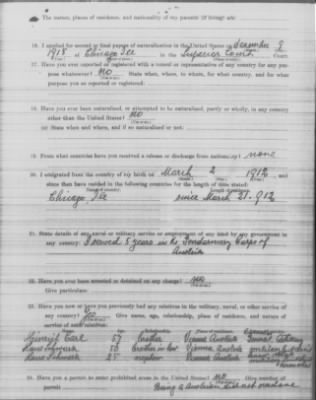 The names, places of residence, and nationality of my parents (if living) are
16. I applied for second or final papers of naturalization in the United States on December 9
1918 at Chicago Ill in the Superior Court Court.
17. Have you ever reported or registered with a consul or representative of any country for any pur-
pose whatsoever? No State when, where, to whom, for what country, and for what
purpose you so reported or registered:
18. Have you ever been naturalized, or attempted to be naturalized, partly or wholly, in any country
other than the United States? No
(a) State when and where, and if so naturalized or not:
19. From what countries have you received a release or discharge from nationality? none
20. I emigrated from the country of my birth on March 2 1912, and
since then have resided in the following countries for the length of time stated:
Chicago, Ill since March 21. 912
21. State details of any naval or military service or employment of any kind by any government in
any country: I served 5 years in the Gendarmery Corps of
Austria
22. Have you ever been arrested or detained on any charge? no
Give particulars:
23. Have you now or have you previously had any relatives in the military, naval, or other service of
any country? Yes Give name, age, relationship, place of residence, and nature of
service of such relatives:
Earl 57 brother Vienna Austria
50 brother in law Vienna Austria
25 nephew Vienna Austria
24. Have you a permit to enter prohibited areas in the United States? No Give number of
permit